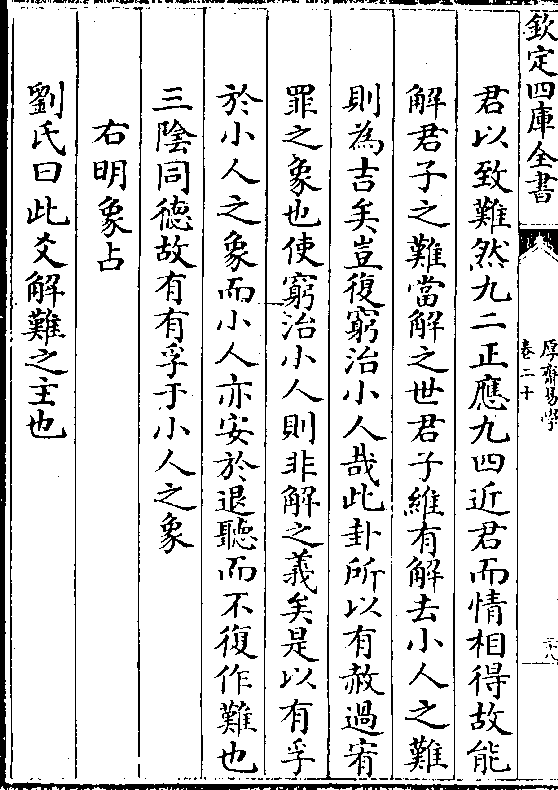 欽定四庫全書
厚齋易學
卷二十
三十八
君以致難然九二正應九四近君而情相得故能
解君子之難當解之世君子維有解去小人之難
則為吉矣豈復窮治小人哉此卦所以有赦過宥
罪之象也使窮治小人則非解之義矣是以有孚
於小人之象而小人亦安於退聽而不復作難也
三陰同德故有有孚于小人之象
右明象占
劉氏曰此爻解難之主也